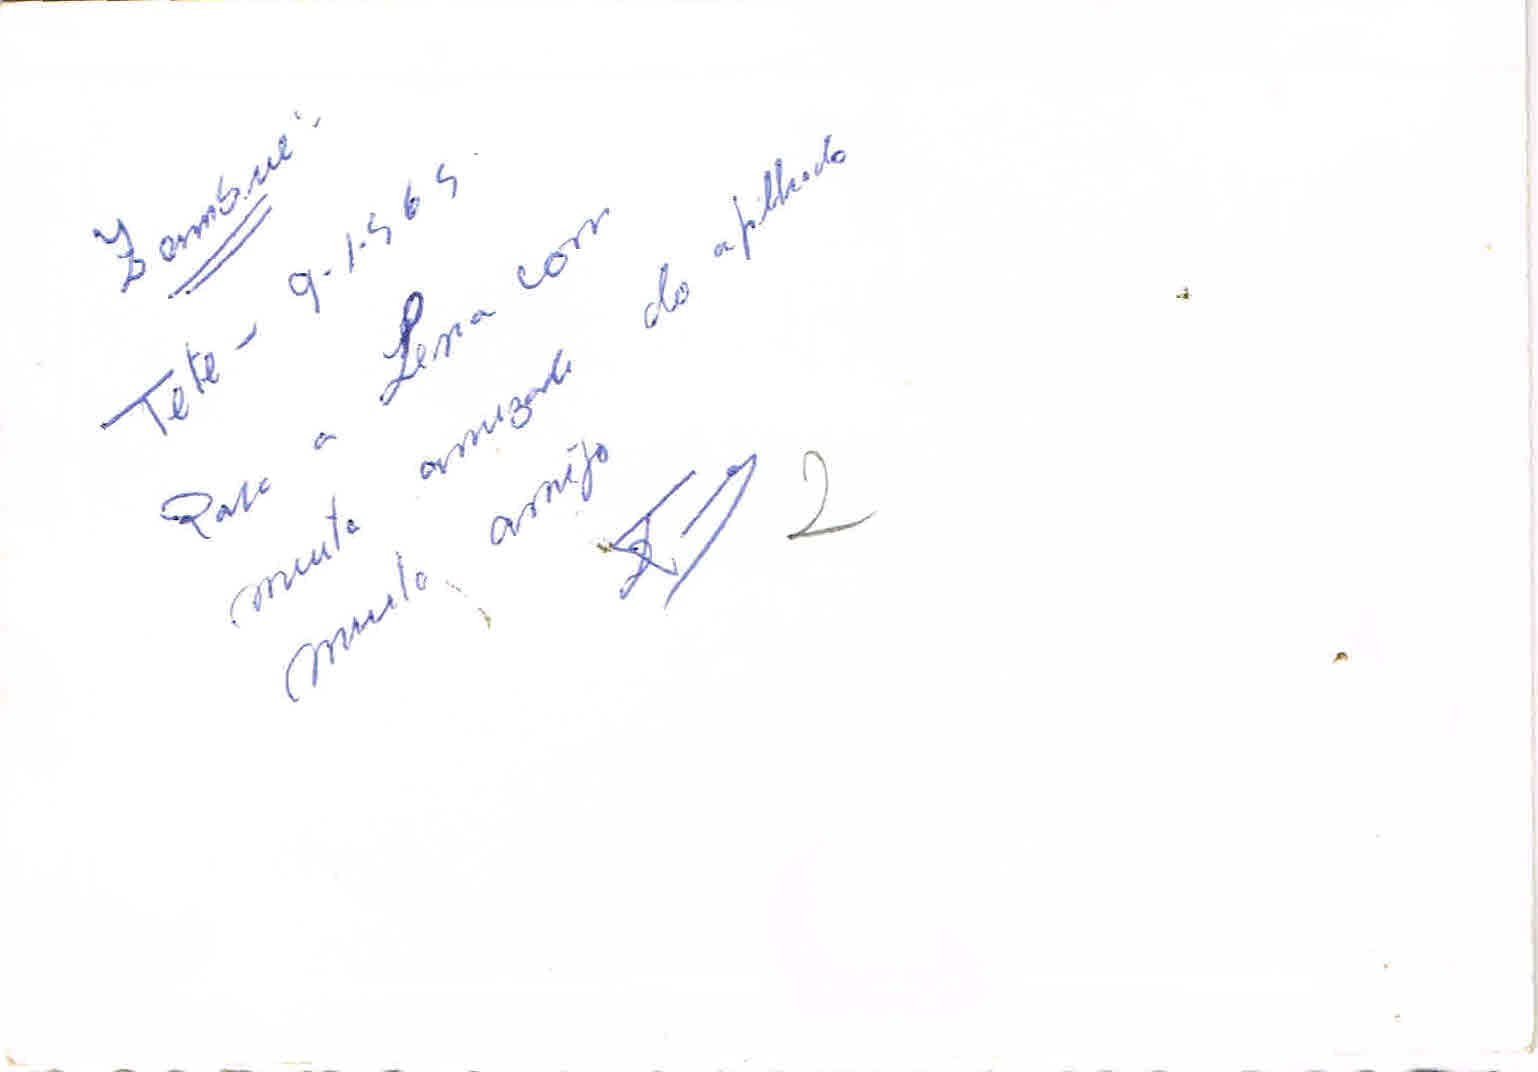 Zambué
Tete - 9-1-965
Para a Lena com
muita amizade do afilhado
muito amigo
2